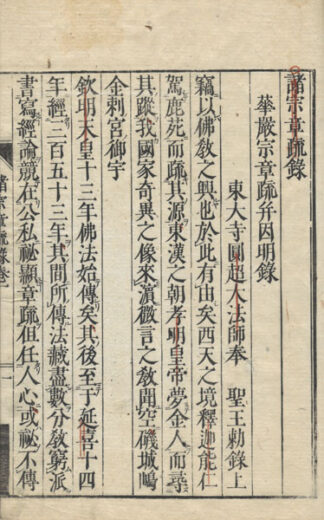 諸宗章疏錄
華嚴宗章疏并因明錄
東大寺圓超大法師奉　聖王勅錄上
竊以佛教之興也於此有由矣西天之境釋迦能仁
駕鹿苑而疏其源東漢之朝孝明皇帝夢金人而尋
其蹤我國家奇異之像來濱微言之教聞空磯城嶋
金刺宮御宇
欽明天皇十三年佛法始傳矣其後至于延喜十四
年經三百五十三年其間所傳法藏盡數分教窮派
書寫經論競在公私祕顯章疏但任人心或祕不傳
諸宗章疏錄卷一